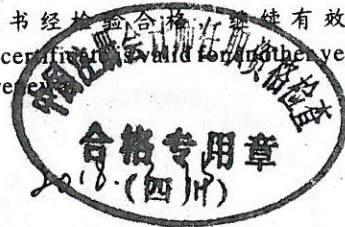 书 经 检 验 合 格 ， 继 续 有 效
certificate is valid for another ye
r
中国注册会计师任职资格检查
合格专用章
2018.
(四川)